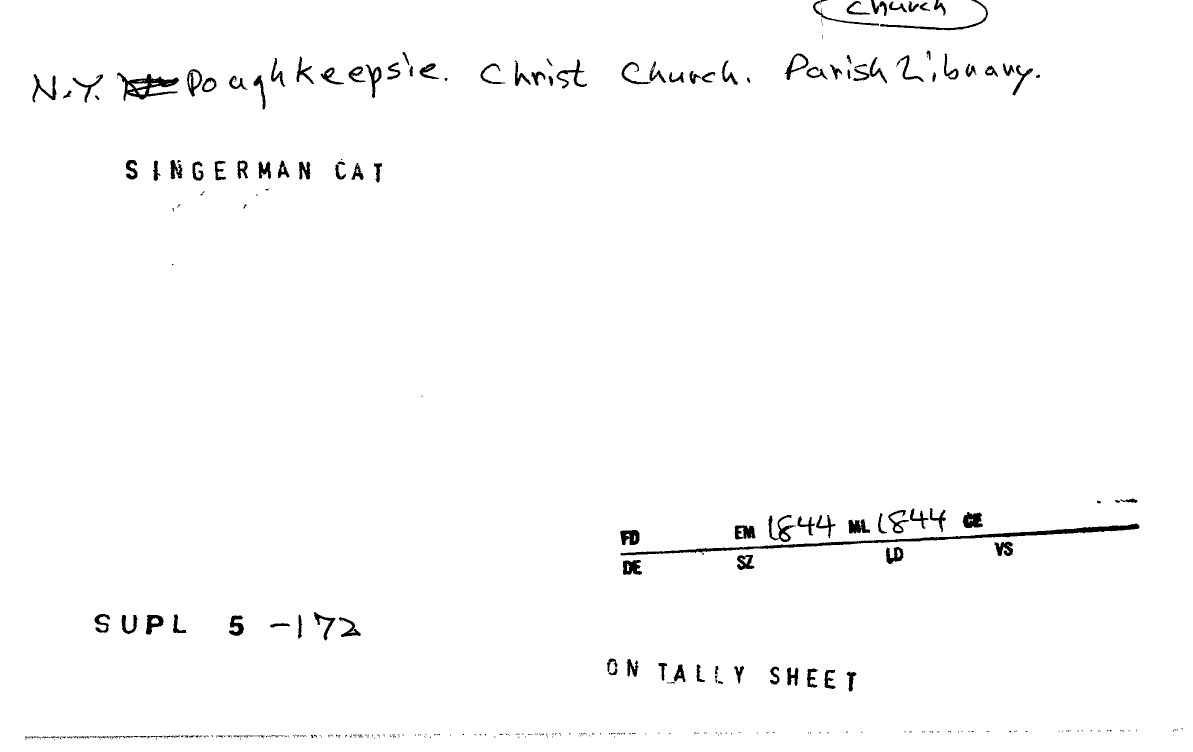 Church
N.Y. Poughkeepsie. Christ Church. Parish Library.
SINGERMAN CAT
FD EM 1844 ML 1844 CE
DE SZ LD VS
SUPL 5 -172
ON TALLY SHEET